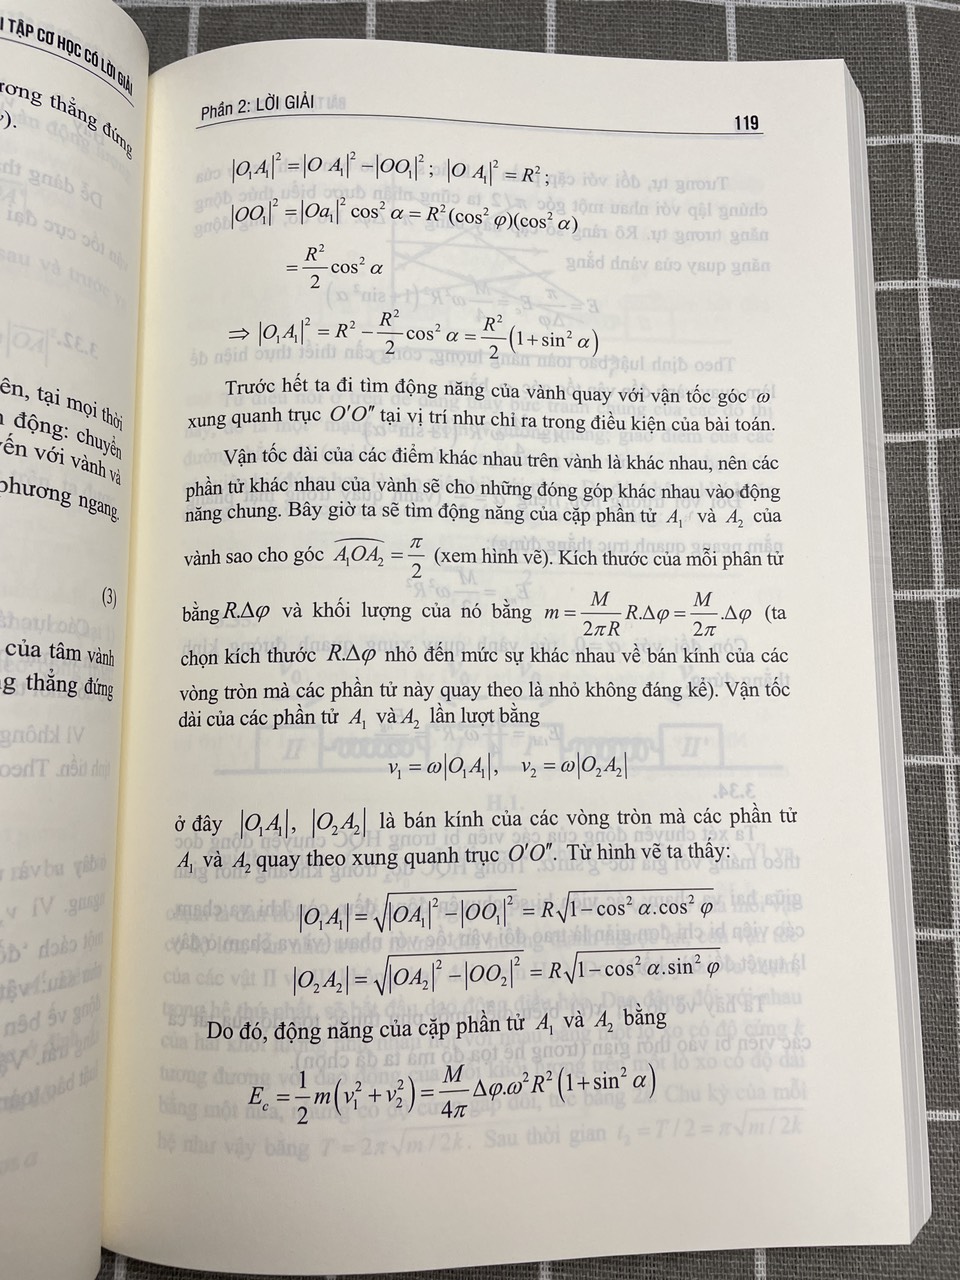 I TẬP CƠ HỌC CÓ LỜI GIẢI
ương thẳng đứng
).
ên, tại mọi thời
động: chuyển
yến với vành và
phương ngang.
(3)
của tâm vành
g thẳng đứng
Phần 2: LỜI GIẢI
119
|O₁A₁|² = |O A₁|² − |OO₁|² ; |O A₁|² = R² ;
|OO₁|² = |Oa₁|² cos² α = R² (cos² φ)(cos² α)
= R²/2 cos² α
⇒ |O₁A₁|² = R² − R²/2 cos² α = R²/2 (1 + sin² α)
Trước hết ta đi tìm động năng của vành quay với vận tốc góc ω
xung quanh trục O'O" tại vị trí như chỉ ra trong điều kiện của bài toán.
Vận tốc dài của các điểm khác nhau trên vành là khác nhau, nên các
phần tử khác nhau của vành sẽ cho những đóng góp khác nhau vào động
năng chung. Bây giờ ta sẽ tìm động năng của cặp phần tử A₁ và A₂ của
vành sao cho góc A₁OA₂ = π/2 (xem hình vẽ). Kích thước của mỗi phần tử
bằng R.Δφ và khối lượng của nó bằng m = M/2πR R.Δφ = M/2π .Δφ (ta
chọn kích thước R.Δφ nhỏ đến mức sự khác nhau về bán kính của các
vòng tròn mà các phần tử này quay theo là nhỏ không đáng kể). Vận tốc
dài của các phần tử A₁ và A₂ lần lượt bằng
v₁ = ω|O₁A₁|, v₂ = ω|O₂A₂|
ở đây |O₁A₁|, |O₂A₂| là bán kính của các vòng tròn mà các phần tử
A₁ và A₂ quay theo xung quanh trục O'O". Từ hình vẽ ta thấy:
|O₁A₁| = √(|OA₁|² − |OO₁|²) = R√(1 − cos² α.cos² φ)
|O₂A₂| = √(|OA₂|² − |OO₂|²) = R√(1 − cos² α.sin² φ)
Do đó, động năng của cặp phần tử A₁ và A₂ bằng
E_c = 1/2 m(v₁² + v₂²) = M/4π Δφ.ω²R² (1 + sin² α)